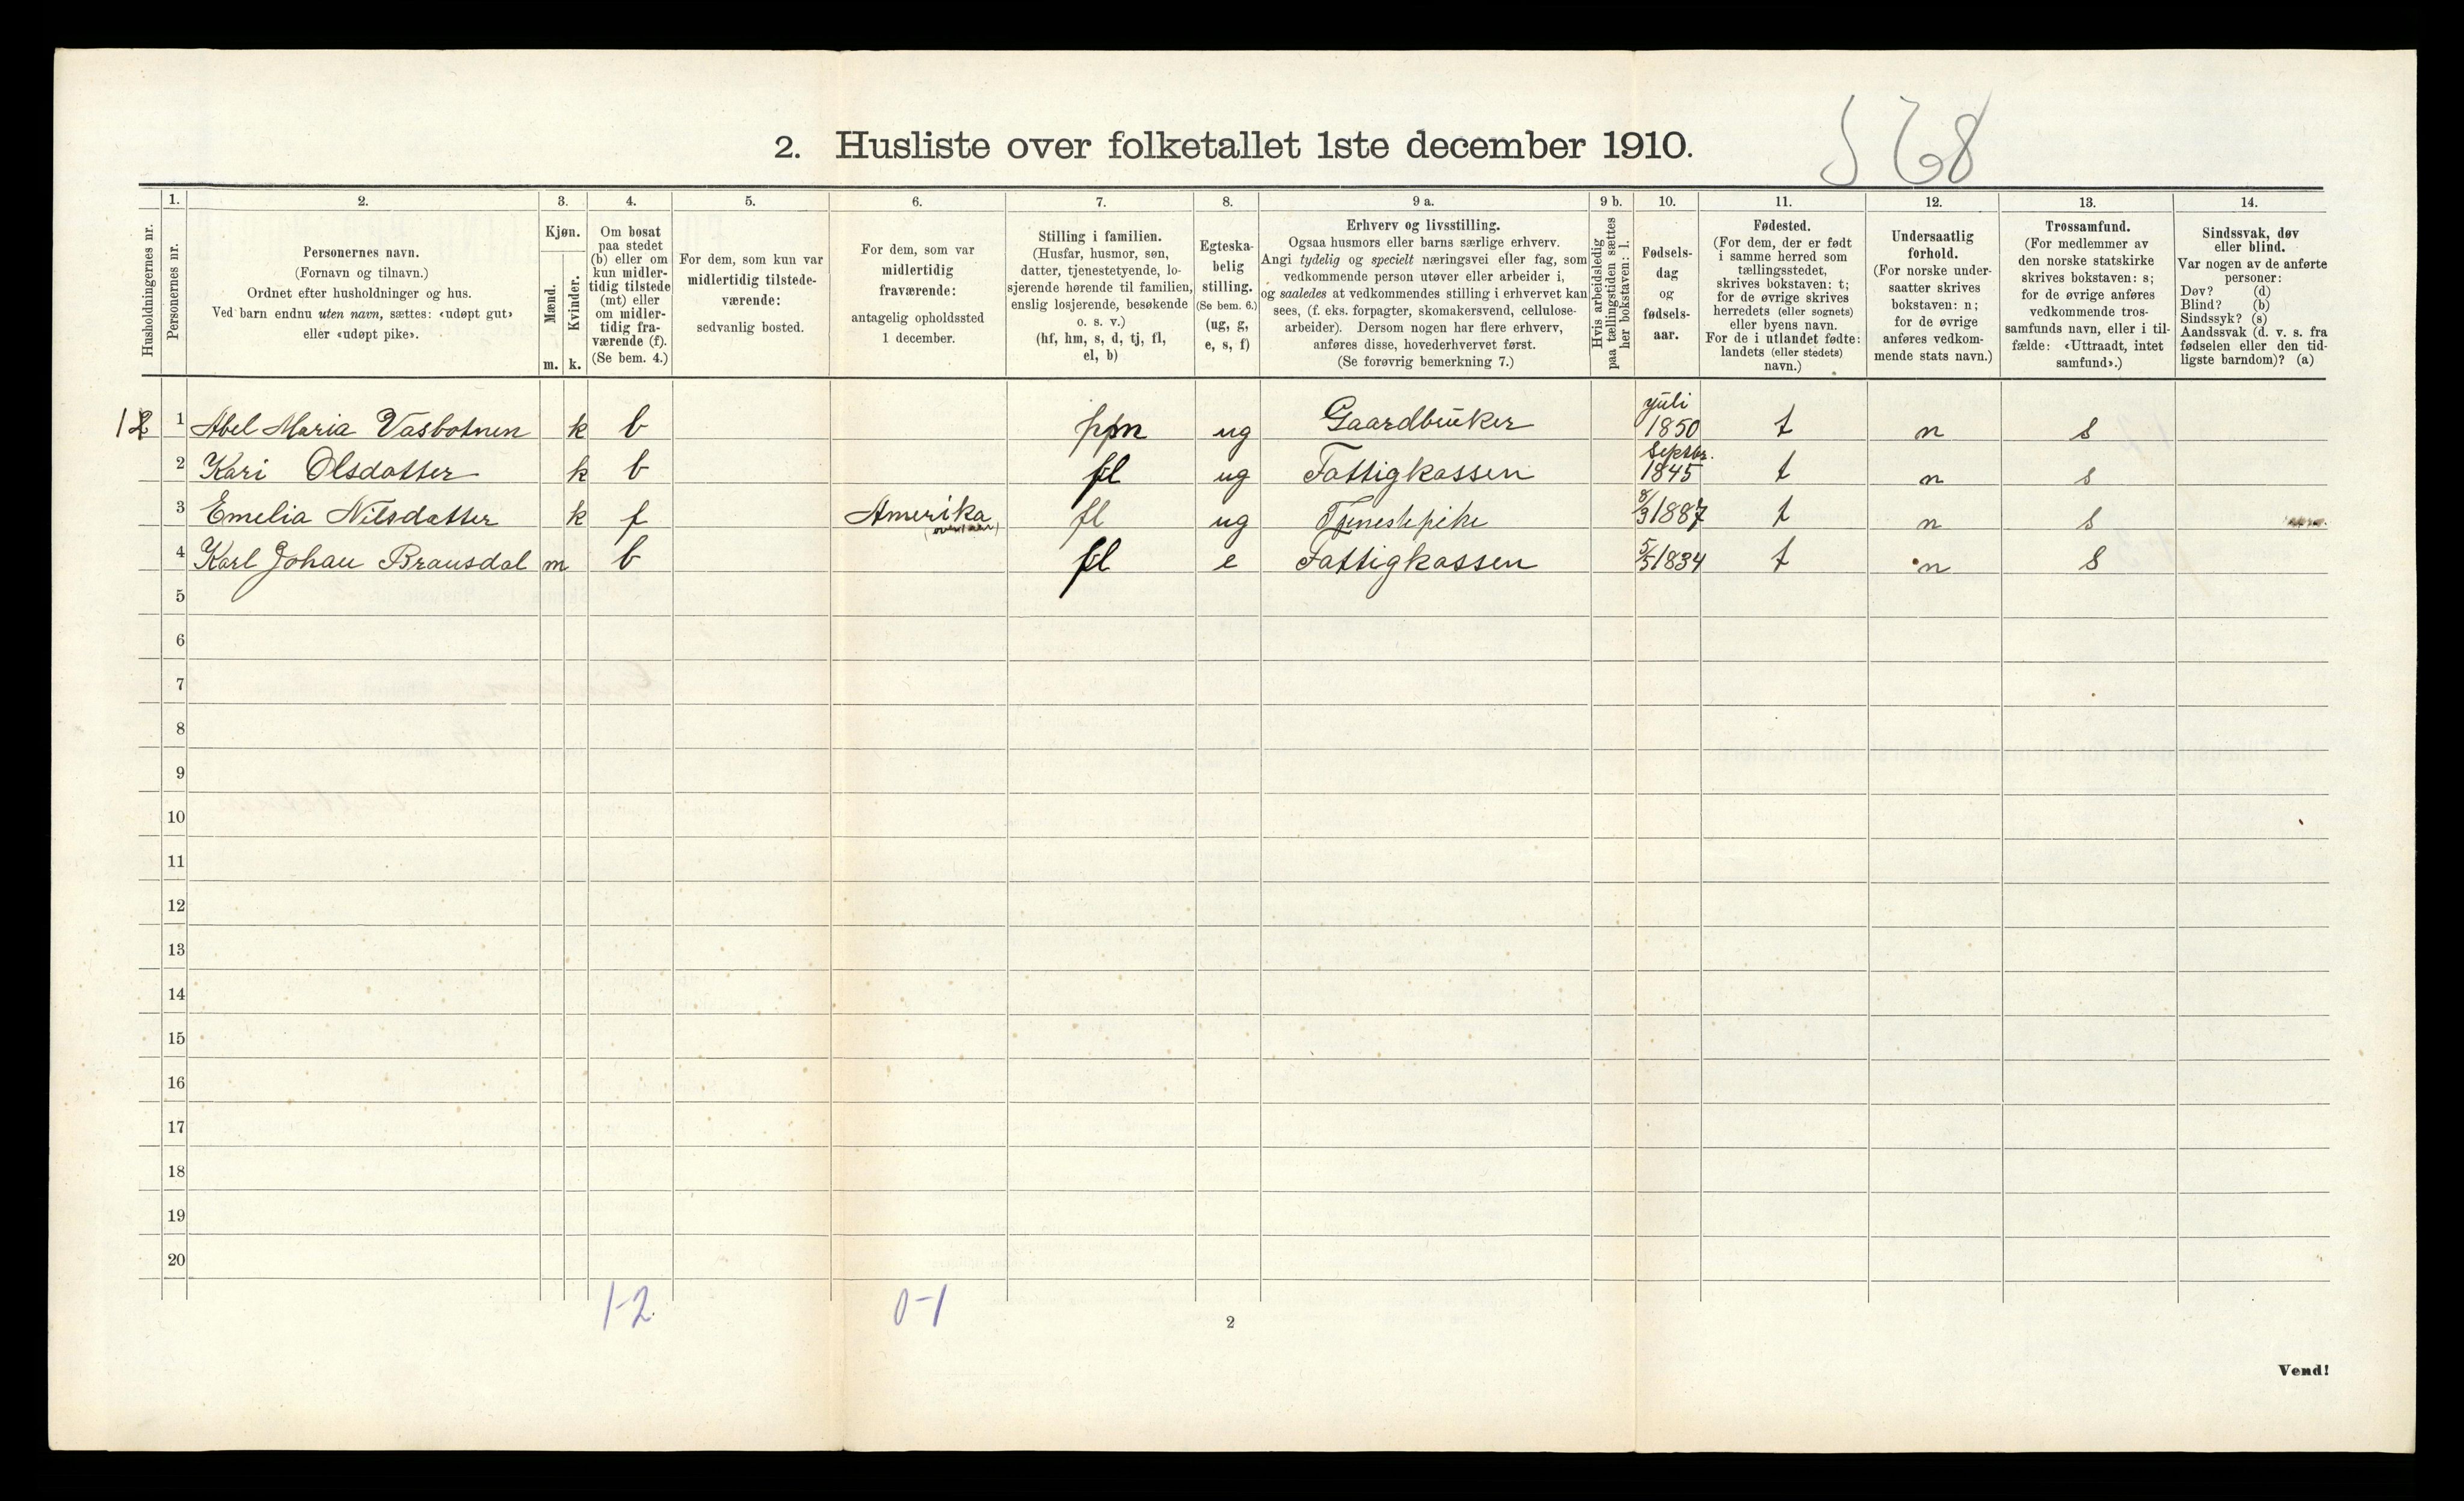 568
2. Husliste over folketallet 1ste december 1910.
1. 2. 3. 4. 5. 6. 7. 8. 9 a. 9 b. 10. 11. 12. 13. 14.
Husholdningernes nr.
Personernes nr.
Personernes navn.
(Fornavn og tilnavn.)
Ordnet efter husholdninger og hus.
Ved barn endnu uten navn, sættes: «udøpt gut»
eller «udøpt pike».
Kjøn.
Mænd.
m.
Kvinder.
k.
Om bosat
paa stedet
(b) eller om
kun midler-
tidig tilstede
(mt) eller
om midler-
tidig fra-
værende (f).
(Se bem. 4.)
For dem, som kun var
midlertidig tilstede-
værende:
sedvanlig bosted.
For dem, som var
midlertidig
fraværende:
antagelig opholdssted
1 december.
Stilling i familien.
(Husfar, husmor, søn,
datter, tjenestetyende, lo-
sjerende hørende til familien,
enslig losjerende, besøkende
o. s. v.)
(hf, hm, s, d, tj, fl,
el, b)
Egteska-
belig
stilling.
(Se bem. 6.)
(ug, g,
e, s, f)
Erhverv og livsstilling.
Ogsaa husmors eller barns særlige erhverv.
Angi tydelig og specielt næringsvei eller fag, som
vedkommende person utøver eller arbeider i,
og saaledes at vedkommendes stilling i erhvervet kan
sees, (f. eks. forpagter, skomakersvend, cellulose-
arbeider). Dersom nogen har flere erhverv,
anføres disse, hovederhvervet først.
(Se forøvrig bemerkning 7.)
Hvis arbeidsledig
paa tællingstiden sættes
her bokstaven: l.
Fødsels-
dag
og
fødsels-
aar.
Fødested.
(For dem, der er født
i samme herred som
tællingsstedet,
skrives bokstaven: t;
for de øvrige skrives
herredets (eller sognets)
eller byens navn.
For de i utlandet fødte:
landets (eller stedets)
navn.)
Undersaatlig
forhold.
(For norske under-
saatter skrives
bokstaven: n;
for de øvrige
anføres vedkom-
mende stats navn.)
Trossamfund.
(For medlemmer av
den norske statskirke
skrives bokstaven: s;
for de øvrige anføres
vedkommende tros-
samfunds navn, eller i til-
fælde: «Uttraadt, intet
samfund».)
Sindssvak, døv
eller blind.
Var nogen av de anførte
personer:
Døv? (d)
Blind? (b)
Sindssyk? (s)
Aandssvak (d. v. s. fra
fødselen eller den tid-
ligste barndom)? (a)
1 Abel Maria Vasbotnen k b ug Gaardbruker juli 1850 t n s
2 Kari Olsdatter k b fl ug Fattigkassen Septbr. 1845 t n s
3 Emelia Nilsdatter k f Amerika fl ug Tjenestepike 8/3 1887 t n s
4 Karl Johan Bransdal m b fl e Fattigkassen 5/5 1834 t n s
5
6
7
8
9
10
11
12
13
14
15
16
17
18
19
20
1-2 0-1
2
Vend!